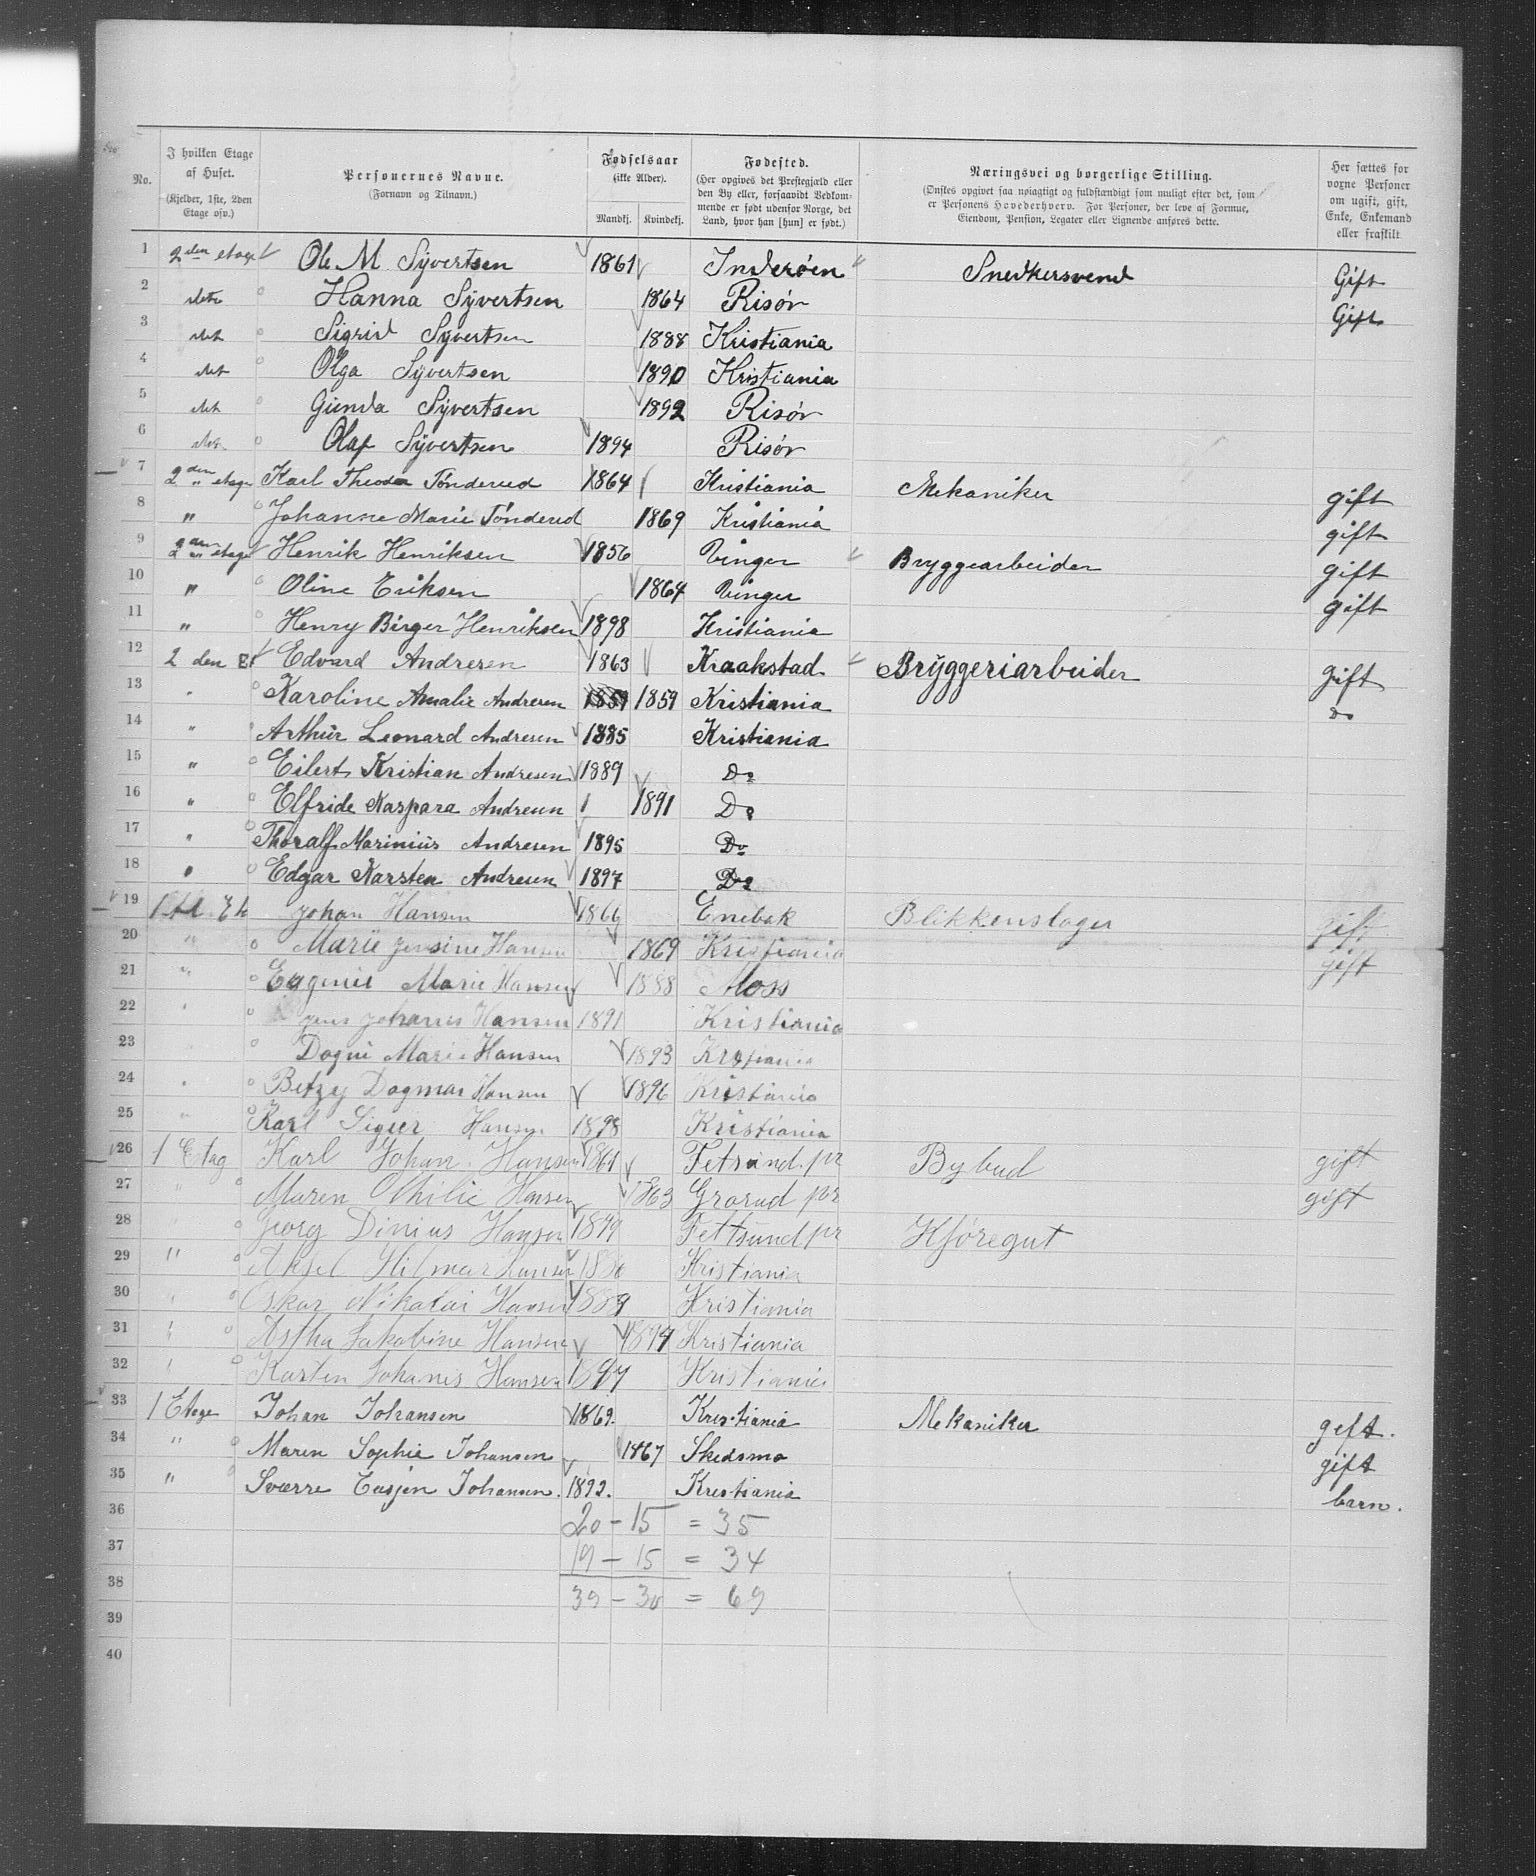 No. | I hvilken Etage af Huset. (Kjelder, 1ste, 2den Etage osv.) | Personernes Navne. (Fornavn og Tilnavn.) | Fødselsaar (ikke Alder). Mandkj. Kvindekj. | Fødested. (Her opgives det Prestegjæld eller den By eller, forsaavidt Vedkommende er født udenfor Norge, det Land, hvor han [hun] er født.) | Næringsvei og borgerlige Stilling. (Ønskes opgivet saa nøiagtigt og fuldstændigt som muligt efter det, som er Personens Hovederhverv. For Personer, der leve af Formue, Eiendom, Pension, Legater eller Lignende anføres dette. | Her sættes for voxne Personer om ugift, gift, Enke, Enkemand eller fraskilt.
1 2den etage Ole M. Syvertsen 1861 Inderøen Snedkersvend Gift
2 Hanna Syvertsen 1864 Risør Gift
3 det Sigrid Syvertsen 1888 Kristiania
4 det Olga Syvertsen 1890 Kristiania
5 det Gunda Syvertsen 1892 Risør
6 Olaf Syvertsen 1894 Risør
7 2den etage Karl Theodor Tønderud 1864 Kristiania Mekaniker gift
8 " Johanne Marie Tønderud 1869 Kristiania gift
9 2den etage Henrik Henriksen 1856 Vinger Bryggearbeider gift
10 " Oline Eriksen 1864 Vinger gift
11 " Henry Birger Henriksen 1898 Kristiania
12 2 den Et Edvard Andresen 1863 Kraakstad Brÿggeriarbeider gift
13 " Karoline Amalie Andresen 1859 1859 Kristiania Do
14 " Arthür Leonard Andresen 1885 Kristiania
15 " Eilert Kristian Andresen 1889 Do
16 " Elfride Kaspara Andresen 1 1891 Do
17 " Thoralf Mariniüs Andresen 1895 Do
18 " Edgar Karsten Andresen 1897 Do
19 Johan Hansen 1866 Enebak Blikkenslager gift
20 " Marie Jensine Hansen 1869 Kristiania gift
21 " Eugenie Marie Hansen 1888 Moss
22 " Jens Johannes Hansen 1891 Kristiania
23 Dagni Marie Hansen 1893 Kristiania
24 " Betzy Dagmar Hansen 1896 Kristiania
25 " Karl Sigver Hansen 1898 Kristiania
26 1 Etag Karl Johan Hansen 1861 Fetsund pr Bybud gift
27 " Maren Othilie Hansen 1863 Grorud pr gift
28 Georg Dinius Hansen 1879 Fettsund pr Kjøregut
29 " Aksel Hilmar Hansen Kristiania
30 " Oskar Nikolai Hansen 1889 Kristiania
31 " Astha Jakobine Hansen 1894 Kristiania
32 " Karsten Johanis Hansen 1897 Kristiania
33 1 Etage Johan Johansen 1869. Kristiania Mekaniker gift.
34 " Maren Sophie Johansen 1867 Skedsmo gift
35 " Sverre Johansen. 1892. Kristiania barn.
36 20 – 15 = 35
37 19 – 15 = 34
38 39 – 30 = 69
39
40